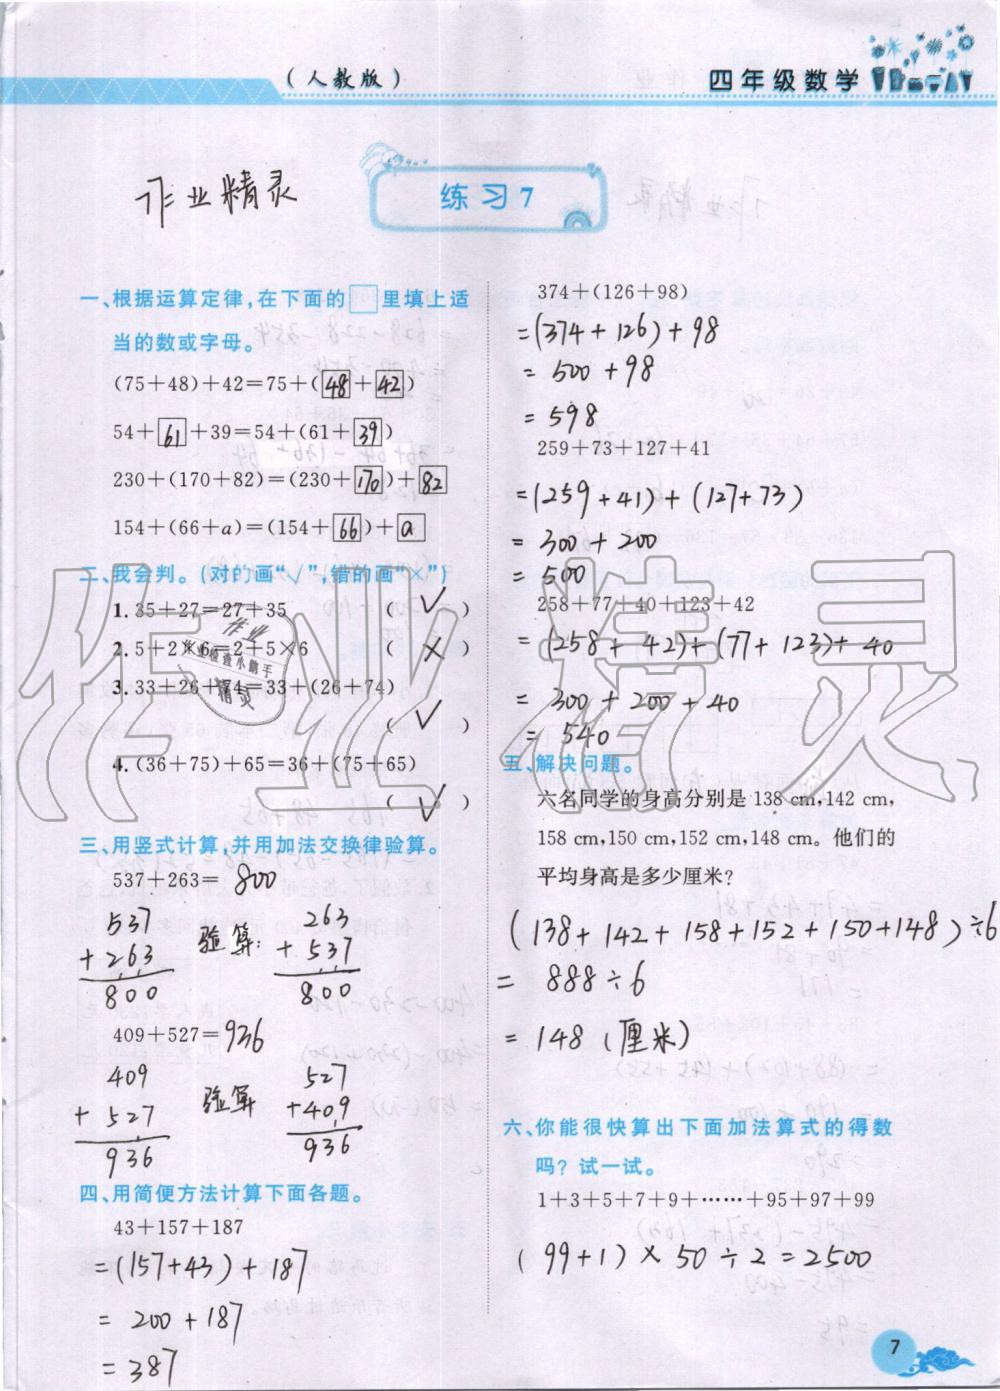 (人教版)
四年级数学
作业精灵
练习7
一、根据运算定律,在下面的□里填上适
当的数或字母。
(75+48)+42=75+(48+42)
54+61+39=54+(61+39)
230+(170+82)=(230+170)+82
154+(66+a)=(154+66)+a
二、我会判。(对的画“√”,错的画“×”)
1. 35+27=27+35 (√)
2. 5+2×6=2+5×6 (×)
3. 33+26+74=33+(26+74)
(√)
4. (36+75)+65=36+(75+65)
(√)
三、用竖式计算,并用加法交换律验算。
537+263=800
537 验算: 263
+263 +537
800 800
409+527=936
409 验算 527
+527 +409
936 936
四、用简便方法计算下面各题。
43+157+187
=(157+43)+187
=200+187
=387
374+(126+98)
=(374+126)+98
=500+98
=598
259+73+127+41
=(259+41)+(127+73)
=300+200
=500
258+77+40+123+42
=(258+42)+(77+123)+40
=300+200+40
=540
五、解决问题。
六名同学的身高分别是138 cm,142 cm,
158 cm,150 cm,152 cm,148 cm。他们的
平均身高是多少厘米?
(138+142+158+152+150+148)÷6
=888÷6
=148(厘米)
六、你能很快算出下面加法算式的得数
吗?试一试。
1+3+5+7+9+……+95+97+99
(99+1)×50÷2=2500
作业精灵
作业
作业检查小助手
精灵
7